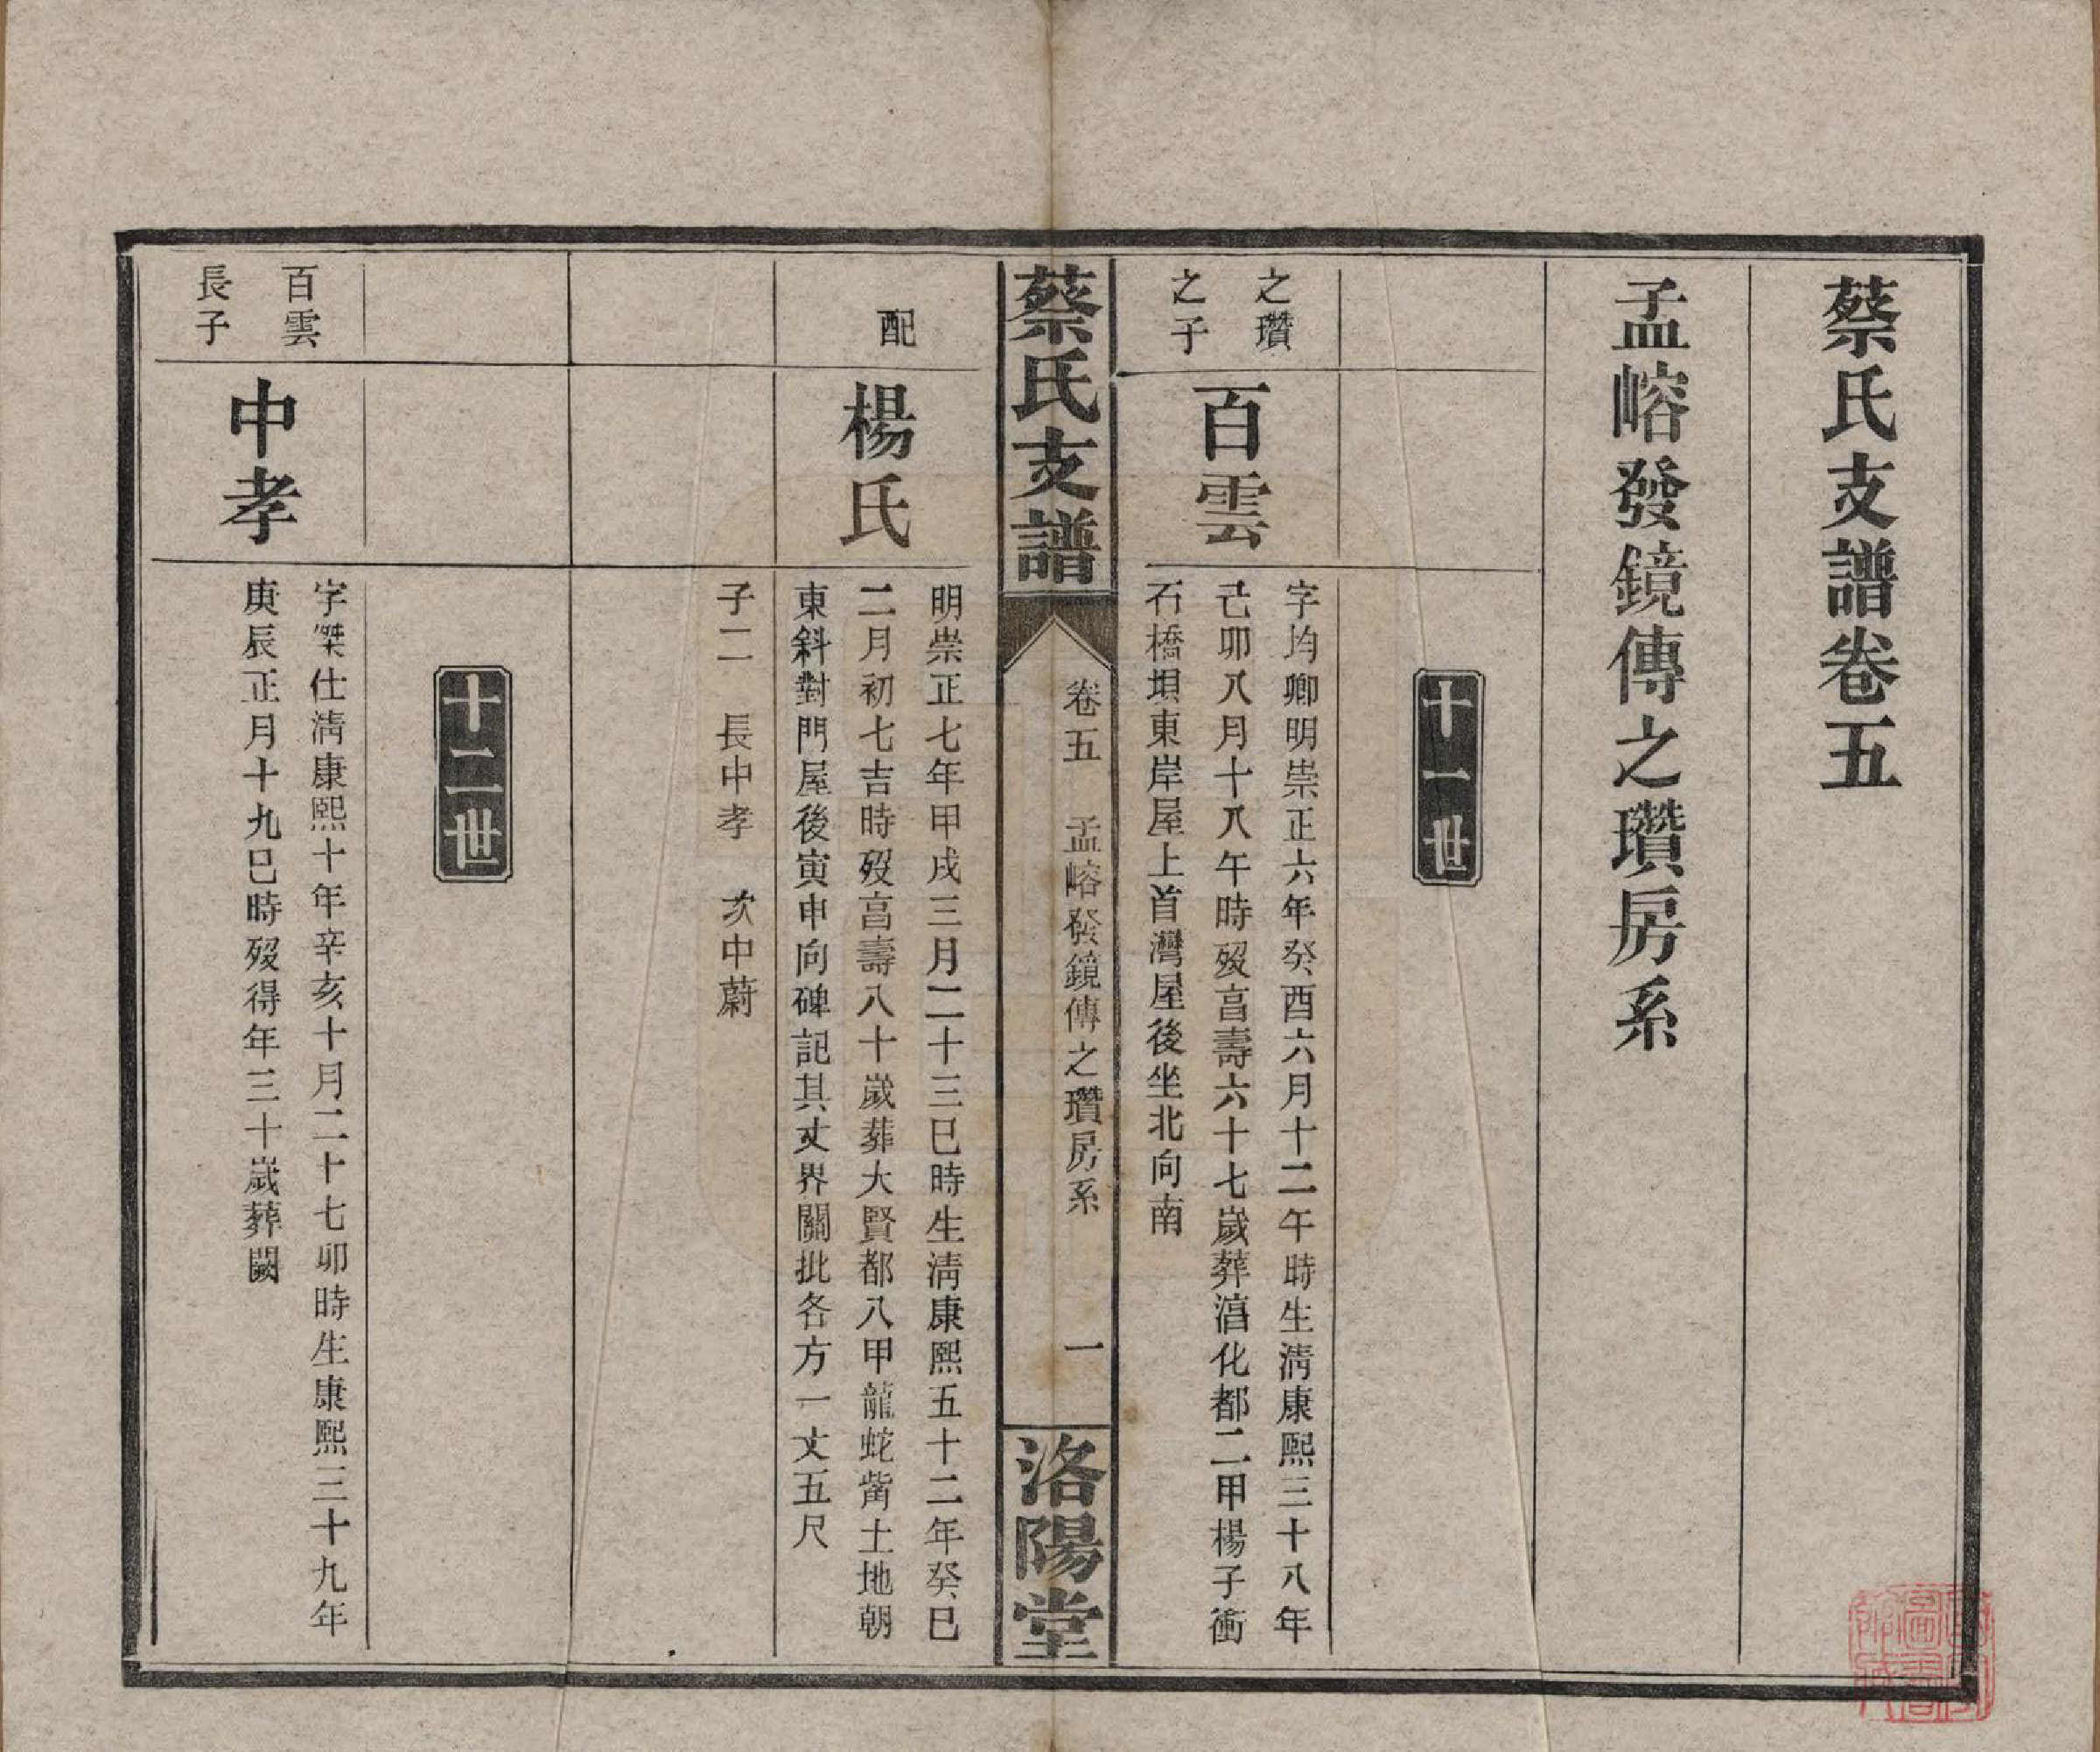 蔡氏支譜卷五
孟嵱發鏡傳之瓚房系
十一世
之瓚
之子
百雲
字均卿明崇正六年癸酉六月十二午時生淸康熙三十八年
己卯八月十八午時歿亯壽六十七歲葬湻化都二甲楊子衝
石橋垻東岸屋上首灣屋後坐北向南
蔡氏支譜
卷五 孟嵱發鏡傳之瓚房系 一
洛陽堂
配
楊氏
明崇正七年甲戌三月二十三巳時生淸康熙五十二年癸巳
二月初七吉時歿亯壽八十歲葬大賢都八甲龍蛇觜土地朝
東斜對門屋後寅申向碑記其丈界關批各方一丈五尺
子二 長中孝 次中蔚
十二世
百雲
長子
中孝
字傑仕淸康熙十年辛亥十月二十七卯時生康熙三十九年
庚辰正月十九巳時歿得年三十歲葬闕